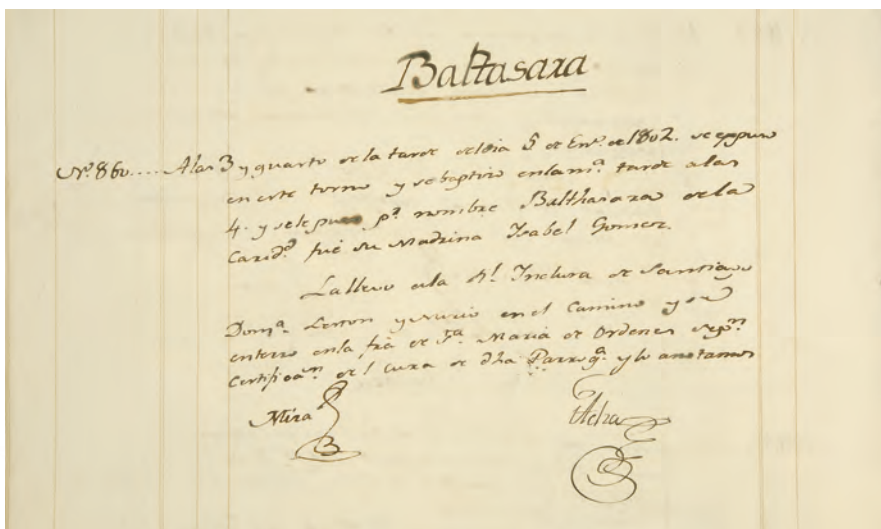 Baltasara
Nº. 860.... A las 3 y quarto de la tarde del dia 5 de Enº. de 1802. se expuso
en este torno y se baptizo en la mª. tarde a las
4. y se le puso pr. nombre Balthasara de la
Caridd. fué su Madrina Ysabel Gomez.
La llevo a la Rl. Inclusa de Santiago
Domª. y murio en el Camino y se
enterro en la frâ de Sta. Maria de Ordenes segn.
Certifican. del Cura de dha Parroqª. y lo anotamos
Mira